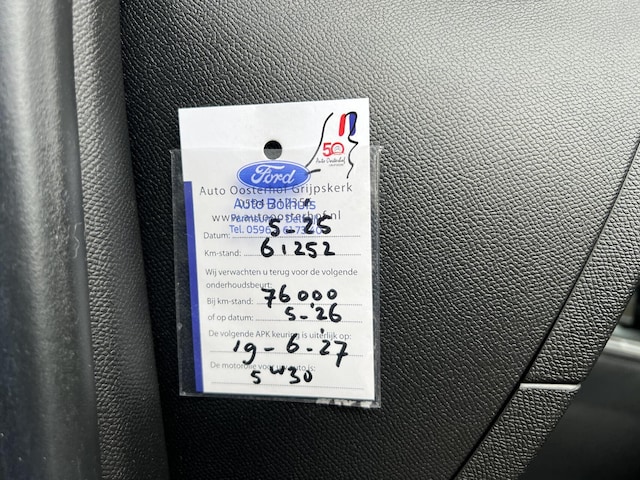 50
Auto Oosterhof
Ford
Auto Oosterhof Grijpskerk
Auto Bolhuis
www.autooosterhof.nl
Datum: 5-'25
Km-stand: 61252
Wij verwachten u terug voor de volgende
onderhoudsbeurt:
Bij km-stand: 76000
of op datum: 5-'26
De volgende APK keuring is uiterlijk op:
19-6-'27
De motorolie voor uw auto is:
5W30